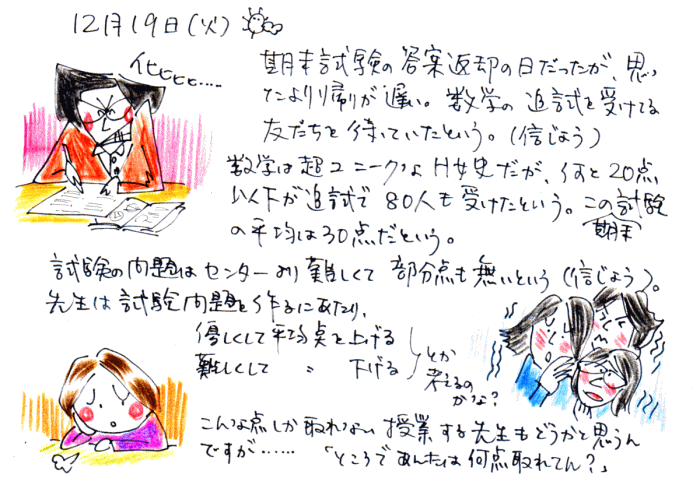 12月19日(火)
イヒヒヒヒ....
期末試験の答案返却の日だったが、思っ
たより帰りが遅い。数学の追試を受けてる
友だちを待っていたという。(信じよう)
数学は超ユニークなH女史だが、何と20点
以下が追試で80人も受けたという。この試験
期末
の平均は30点だという。
試験の問題はセンターより難しくて部分点も無いという(信じよう)。
先生は試験問題を作るにあたり、
優しくして平均点を上げる
難しくして 〃 下げる
とか
考えるの
かな?
こんな点しか取れない授業する先生もどうかと思うん
ですが……「ところであんたは何点取れてん?」